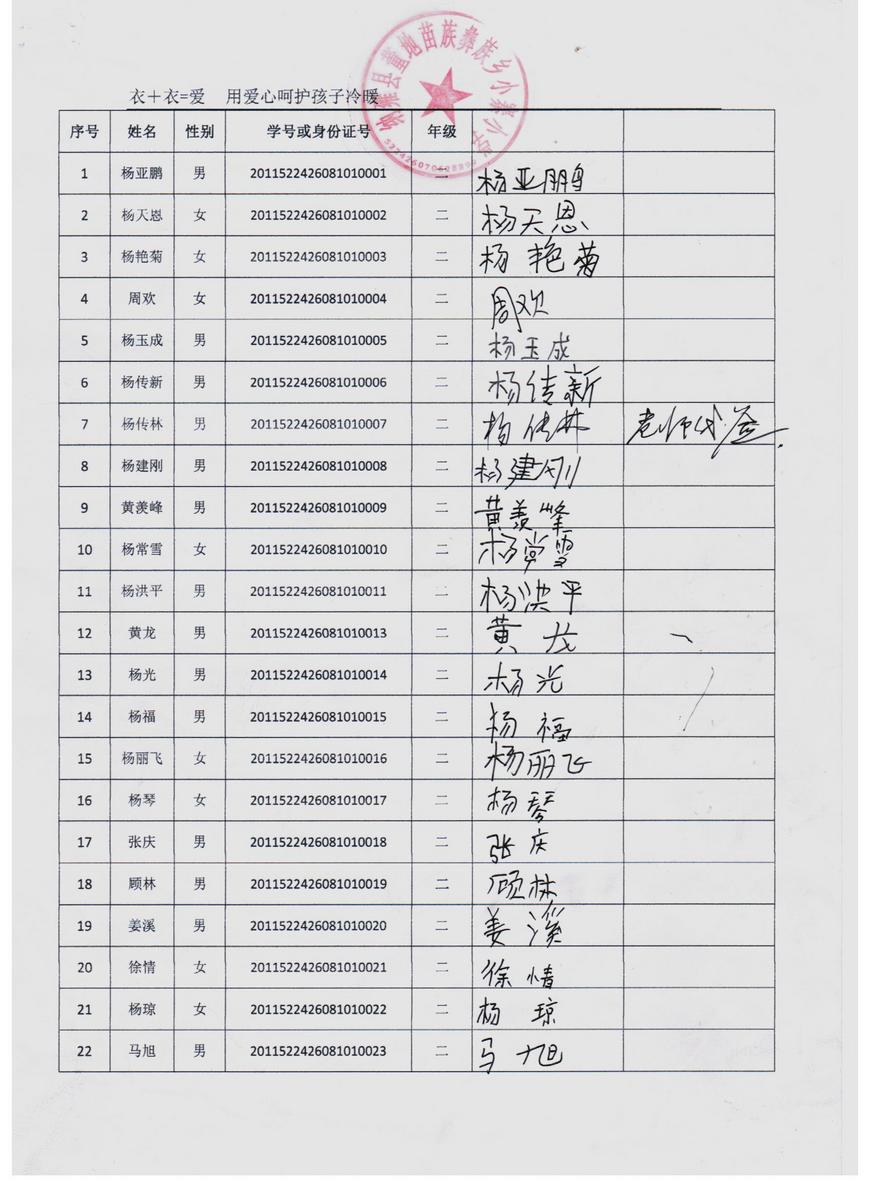 衣＋衣=爱 用爱心呵护孩子冷暖
序号 姓名 性别 学号或身份证号 年级
1 杨亚鹏 男 2011522426081010001 二 杨亚鹏
2 杨天恩 女 2011522426081010002 二 杨天恩
3 杨艳菊 女 2011522426081010003 二 杨艳菊
4 周欢 女 2011522426081010004 二 周欢
5 杨玉成 男 2011522426081010005 二 杨玉成
6 杨传新 男 2011522426081010006 二 杨传新
7 杨传林 男 2011522426081010007 二 杨传林 老师代签
8 杨建刚 男 2011522426081010008 二 杨建刚
9 黄羡峰 男 2011522426081010009 二 黄羡峰
10 杨常雪 女 2011522426081010010 二 杨常雪
11 杨洪平 男 2011522426081010011 二 杨洪平
12 黄龙 男 2011522426081010013 二 黄龙
13 杨光 男 2011522426081010014 二 杨光
14 杨福 男 2011522426081010015 二 杨福
15 杨丽飞 女 2011522426081010016 二 杨丽飞
16 杨琴 女 2011522426081010017 二 杨琴
17 张庆 男 2011522426081010018 二 张庆
18 顾林 男 2011522426081010019 二 顾林
19 姜溪 男 2011522426081010020 二 姜溪
20 徐情 女 2011522426081010021 二 徐情
21 杨琼 女 2011522426081010022 二 杨琼
22 马旭 男 2011522426081010023 二 马旭